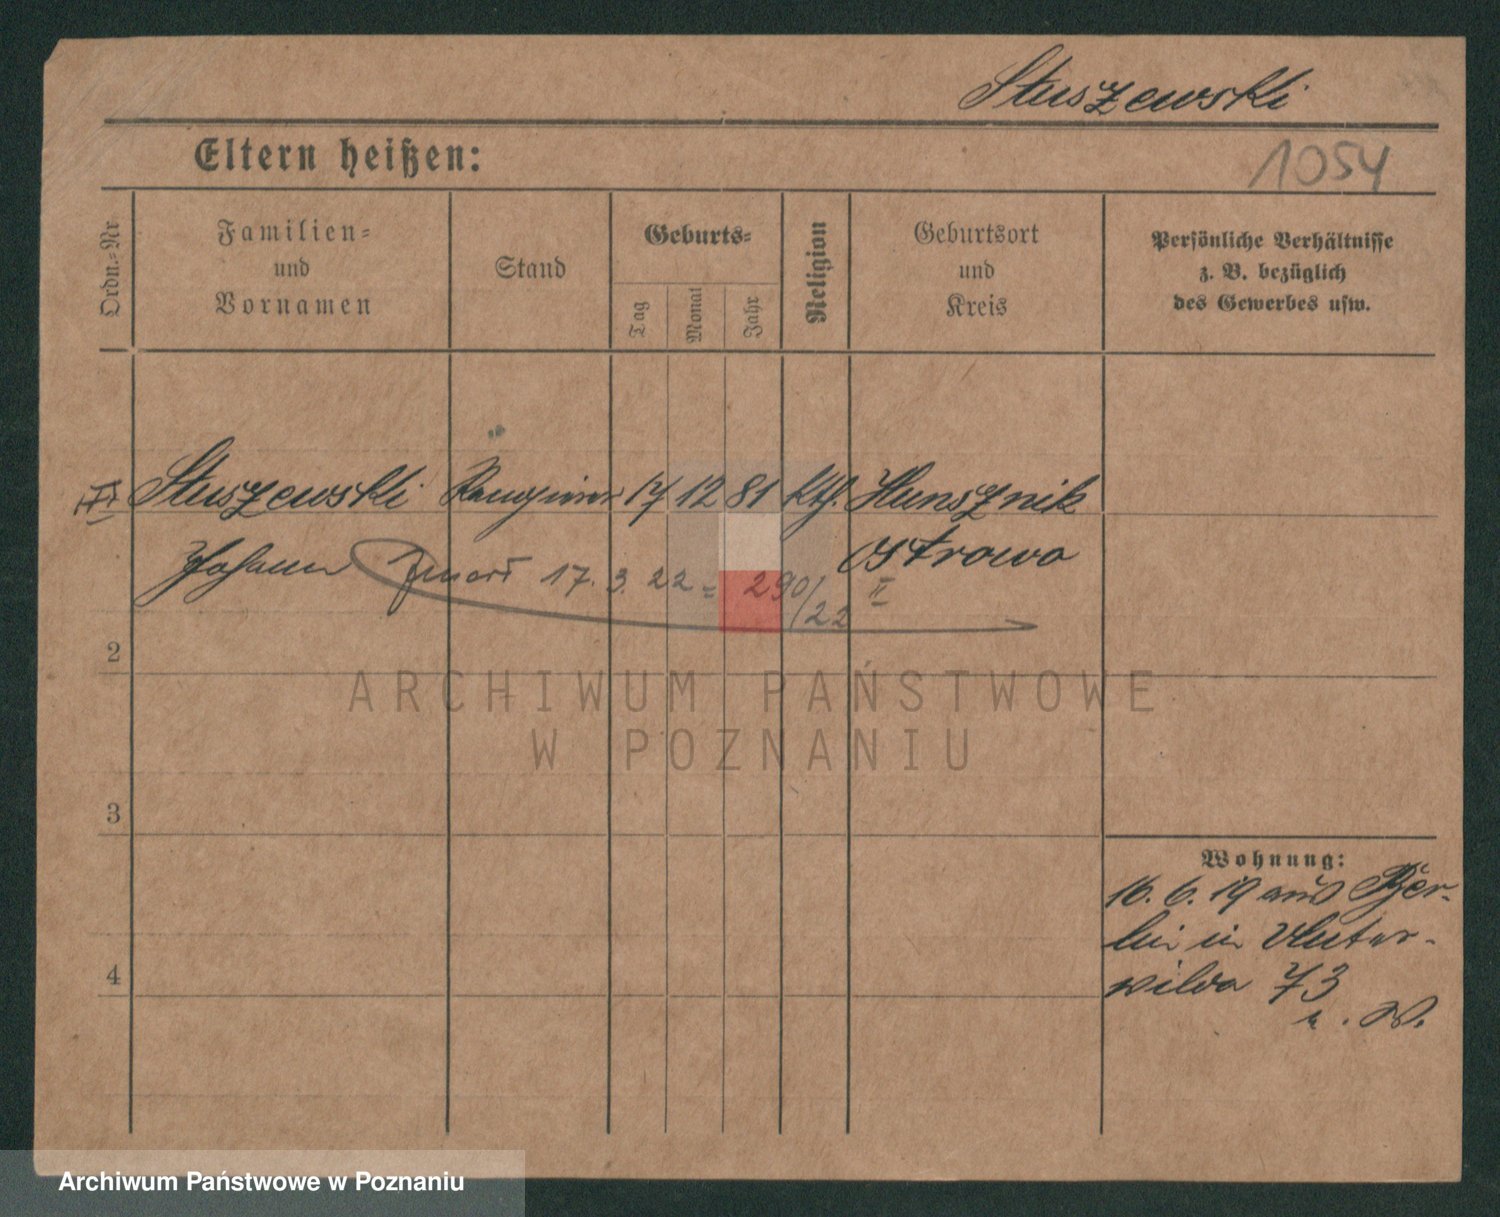 Stuszewski
Eltern heißen:
1054
Ordn.-Nr
Familien-
und
Vornamen
Stand
Geburts-
Tag
Monat
Jahr
Religion
Geburtsort
und
Kreis
Persönliche Verhältnisse
z. B. bezüglich
des Gewerbes usw.
Stuszewski 17 12 81 Kth.
Johann 17. 3. 22 = 290/22 II Ostrowo
2
3
4
Wohnung:
16. 6. 19 aus Ber-
lin in Unter-
wilda 73
ARCHIWUM PAŃSTWOWE
W POZNANIU
Archiwum Państwowe w Poznaniu